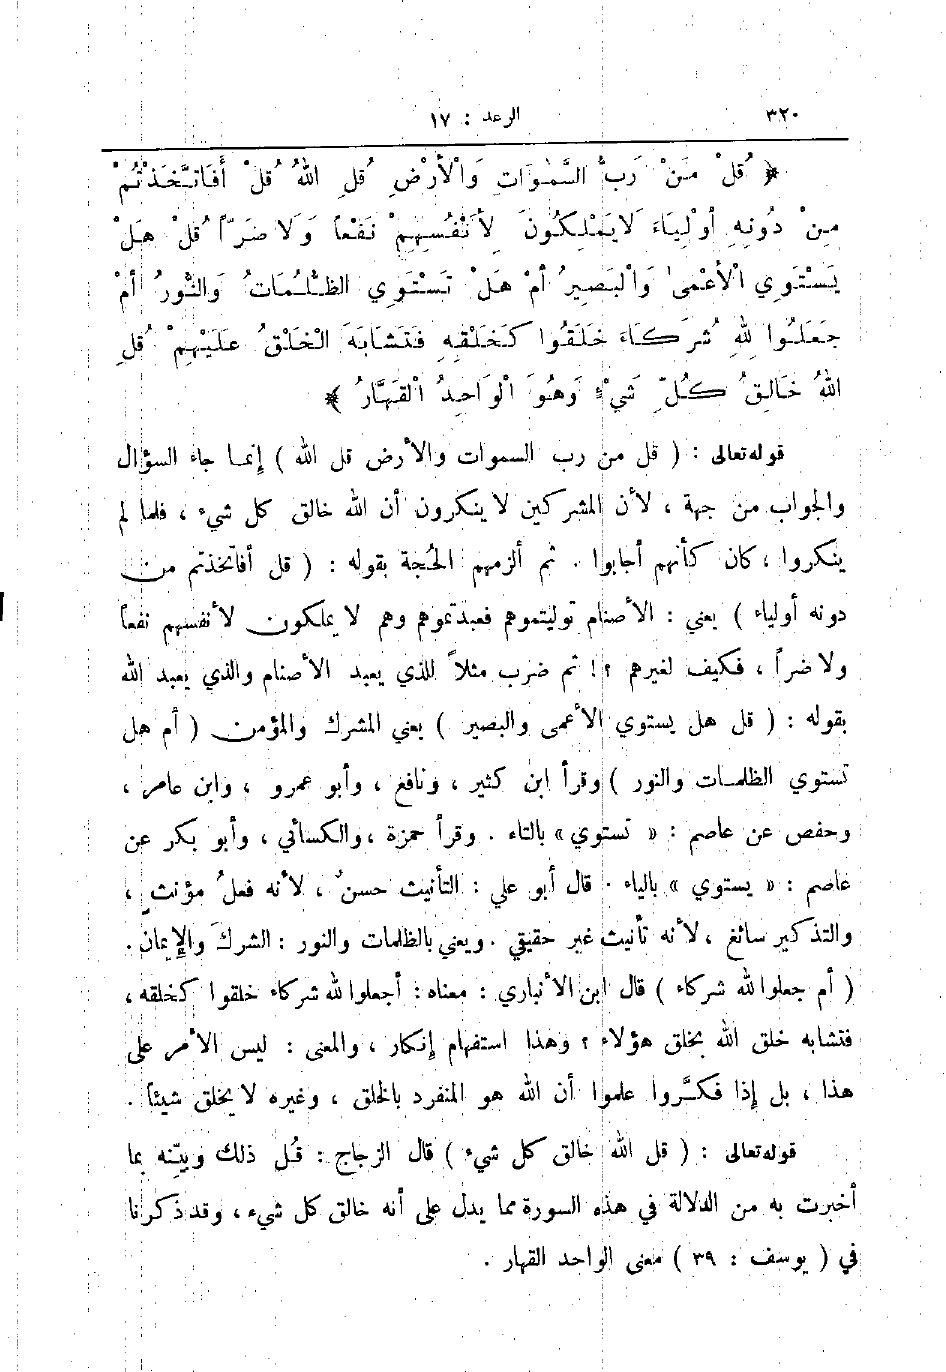 ٣٢٠ الرعد : ١٧
﴿ قُلْ مَنْ رَبُّ السَّمٰوَاتِ وَالْأَرْضِ قُلِ اللهُ قُلْ أَفَاتَّخَذْتُمْ
مِنْ دُونِهِ أَوْلِيَاءَ لَا يَمْلِكُونَ لِأَنْفُسِهِمْ نَفْعاً وَلَا ضَرّاً قُلْ هَلْ
يَسْتَوِي الْأَعْمىٰ وَالْبَصِيرُ أَمْ هَلْ تَسْتَوِي الظُّلُمَاتُ وَالنُّورُ أَمْ
جَعَلُوا لِلهِ شُرَكَاءَ خَلَقُوا كَخَلْقِهِ فَتَشَابَهَ الْخَلْقُ عَلَيْهِمْ قُلِ
اللهُ خَالِقُ كُلِّ شَيْءٍ وَهُوَ الْوَاحِدُ الْقَهَّارُ ﴾
قوله تعالى : ( قل من رب السموات والأرض قل الله ) إنما جاء السؤال
والجواب من جهة ، لأن المشركين لا ينكرون أن الله خالق كل شيء ، فلما لم
ينكروا ، كان كأنهم أجابوا . ثم ألزمهم الحُجة بقوله : ( قل أفاتخذتم من
دونه أولياء ) يعني : الأصنام توليتموهم فعبدتموهم وهم لا يملكون لأنفسهم نفعاً
ولا ضراً ، فكيف لغيرهم ؟! ثم ضرب مثلاً للذي يعبد الأصنام والذي يعبد الله
بقوله : ( قل هل يستوي الأعمى والبصير ) يعني المشرك والمؤمن ( أم هل
تستوي الظلمات والنور ) وقرأ ابن كثير ، ونافع ، وأبو عمرو ، وابن عامر ،
وحفص عن عاصم : « تستوي » بالتاء . وقرأ حمزة ، والكسائي ، وأبو بكر عن
عاصم : « يستوي » بالياء . قال أبو علي : التأنيث حسنٌ ، لأنه فعلُ مؤنثٍ ،
والتذكير سائغ ، لأنه تأنيث غير حقيقي . ويعني بالظلمات والنور : الشركَ والإيمانَ .
( أم جعلوا لله شركاء ) قال ابن الأنباري : معناه : أجعلوا لله شركاء خلقوا كخلقه ،
فتشابه خلق الله بخلق هؤلاء ؟ وهذا استفهام إنكار ، والمعنى : ليس الأمر على
هذا ، بل إذا فكَّروا علموا أن الله هو المنفرد بالخلق ، وغيره لا يخلق شيئاً .
قوله تعالى : ( قل الله خالق كل شيء ) قال الزجاج : قُل ذلك وبيِّنه بما
أخبرت به من الدلالة في هذه السورة مما يدل على أنه خالق كل شيء ، وقد ذكرنا
في ( يوسف : ٣٩ ) معنى الواحد القهار .